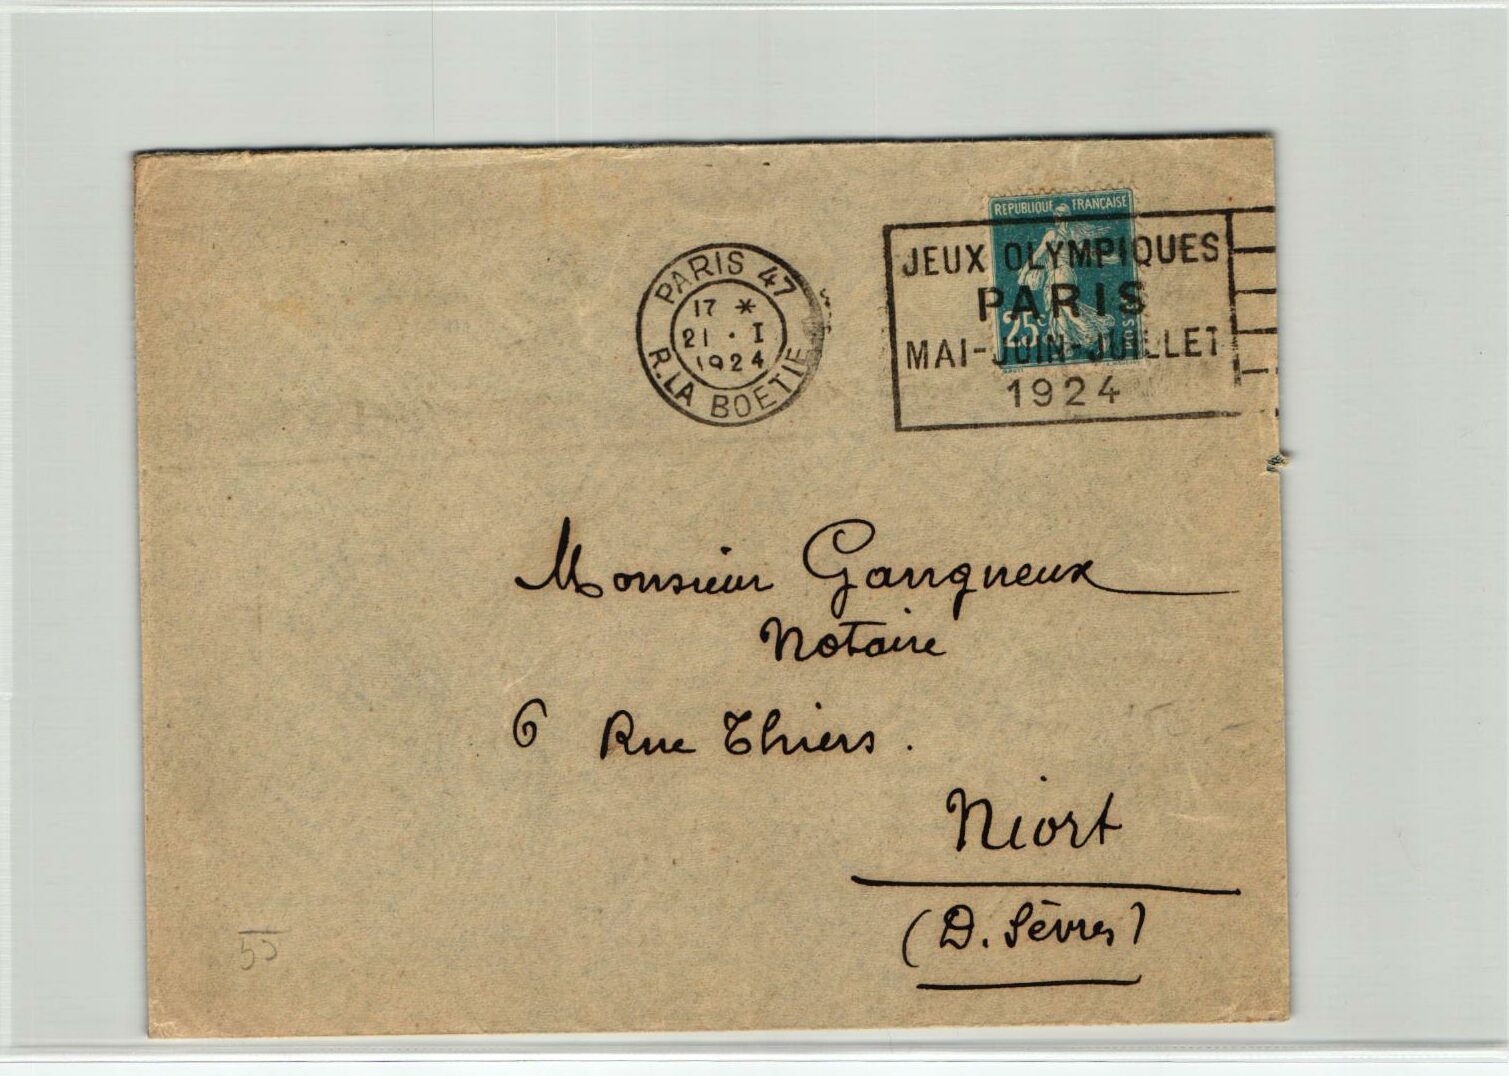 REPUBLIQUE FRANÇAISE
25c
PARIS 47
17 *
21 · I
1924
R. LA BOETIE
JEUX OLYMPIQUES
PARIS
MAI-JUIN-JUILLET
1924
Monsieur Gangneux
Notaire
6 Rue Thiers.
Niort
(D. Sèvres)
55